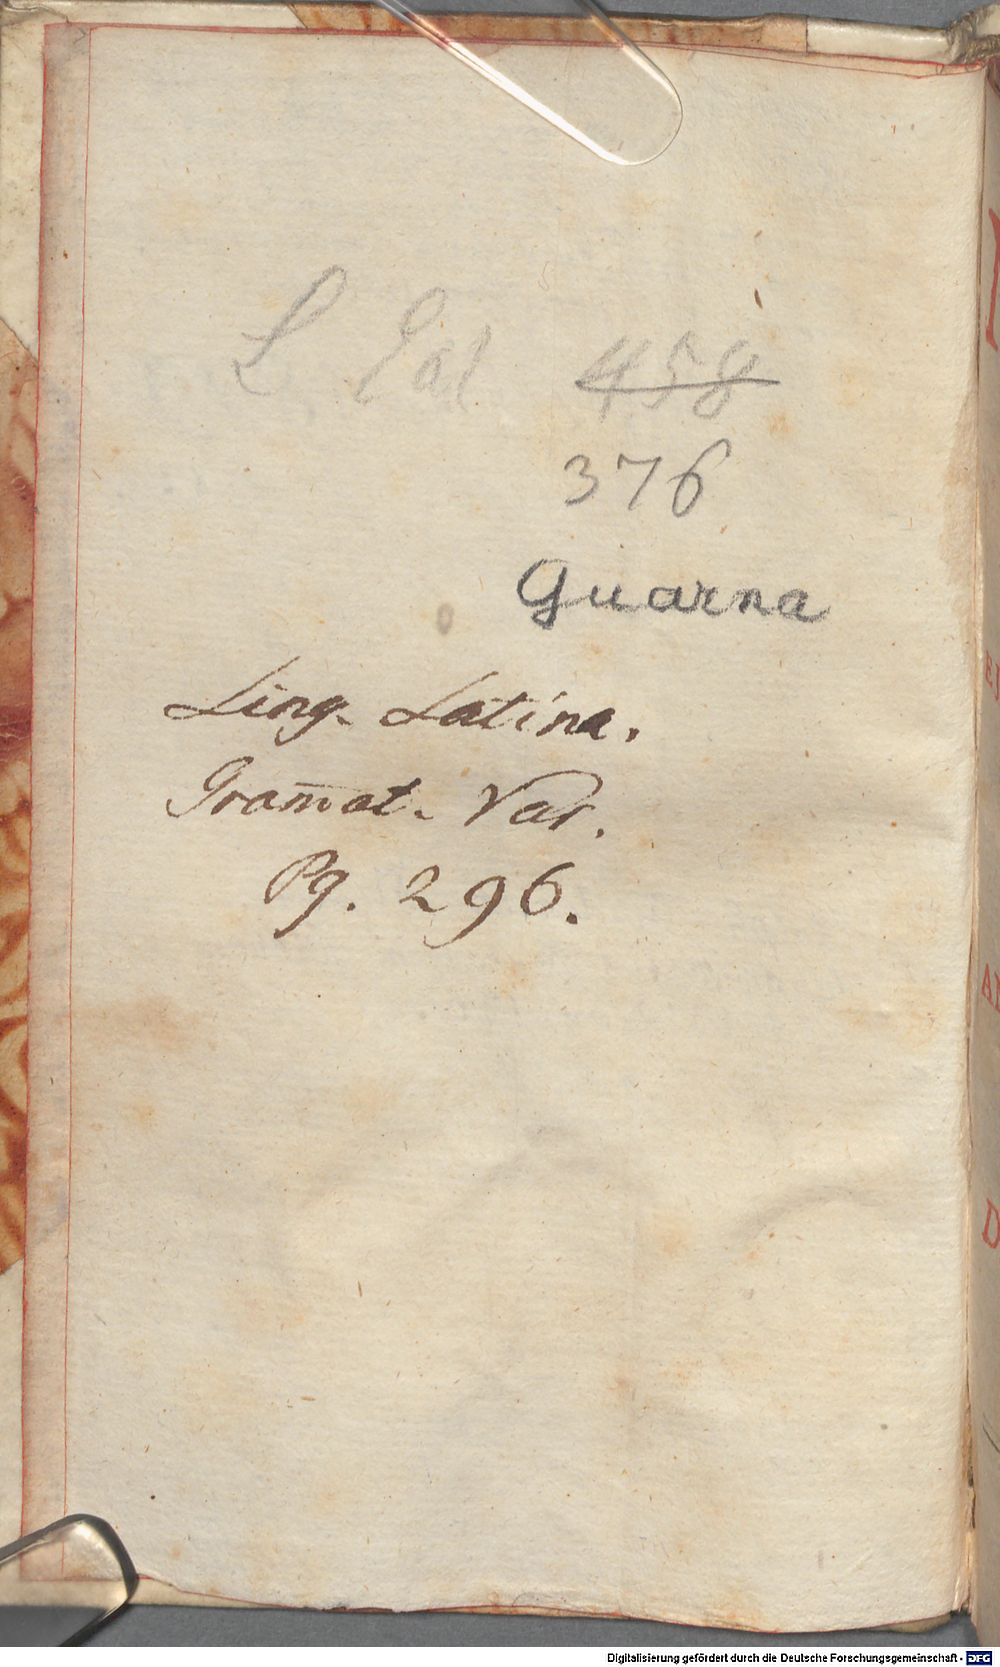 L. Eal 458
376
Guarna
Ling. Latina.
Gram̄at. Var.
Pg. 296.
Digitalisierung gefördert durch die Deutsche Forschungsgemeinschaft - DFG